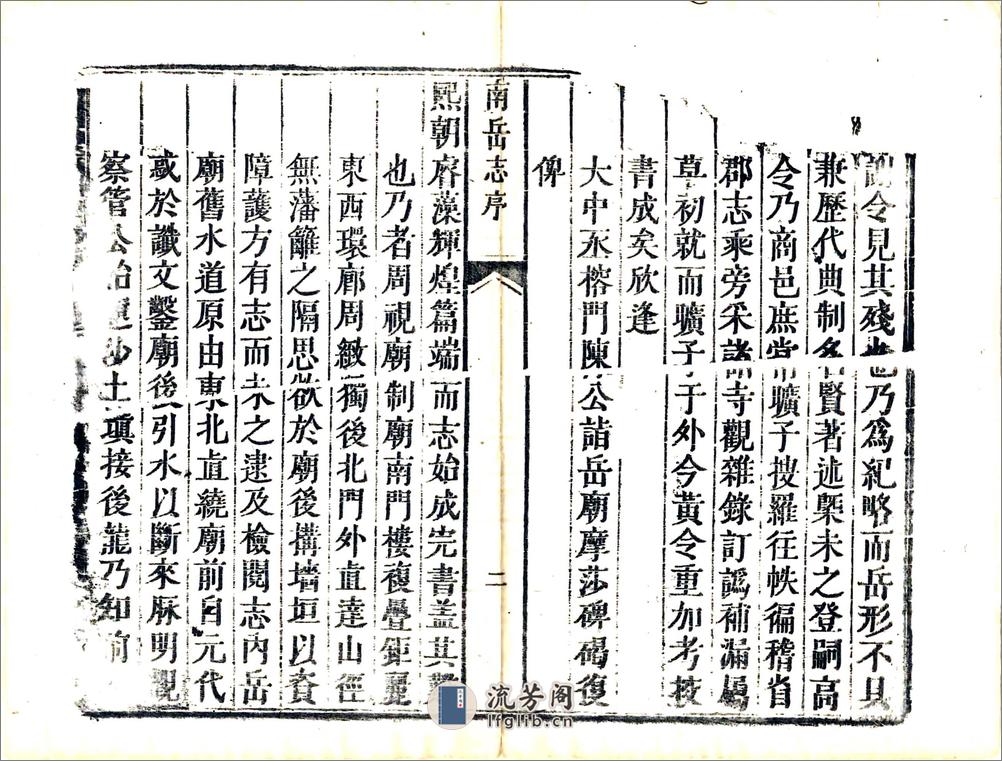 令見其殘也乃為紀略而岳形不具
兼歷代典制名賢著述槩未之登嗣高
令乃商邑庶常曠子搜羅往帙徧稽省
郡志乘旁采諸寺觀雜錄訂譌補漏屬
草初就而曠子于外今黃令重加考挍
書成矣欣逢
大中丞榕門陳公詣岳廟摩莎碑碣復
俾
南岳志序
二
熙朝睿藻輝煌篇端而志始成完書盖其
也乃者周視廟制廟南門樓複疊鉅麗
東西環廊周緻獨後北門外直達山徑
無藩籬之隔思欲於廟後搆墻垣以資
障護方有志而未之逮及檢閱志內岳
廟舊水道原由東北直繞廟前自元代
或於讖文鑿廟後引水以斷來脉明觀
察管公始運沙土填接後龍乃知前
流芳阁
lfglib.cn